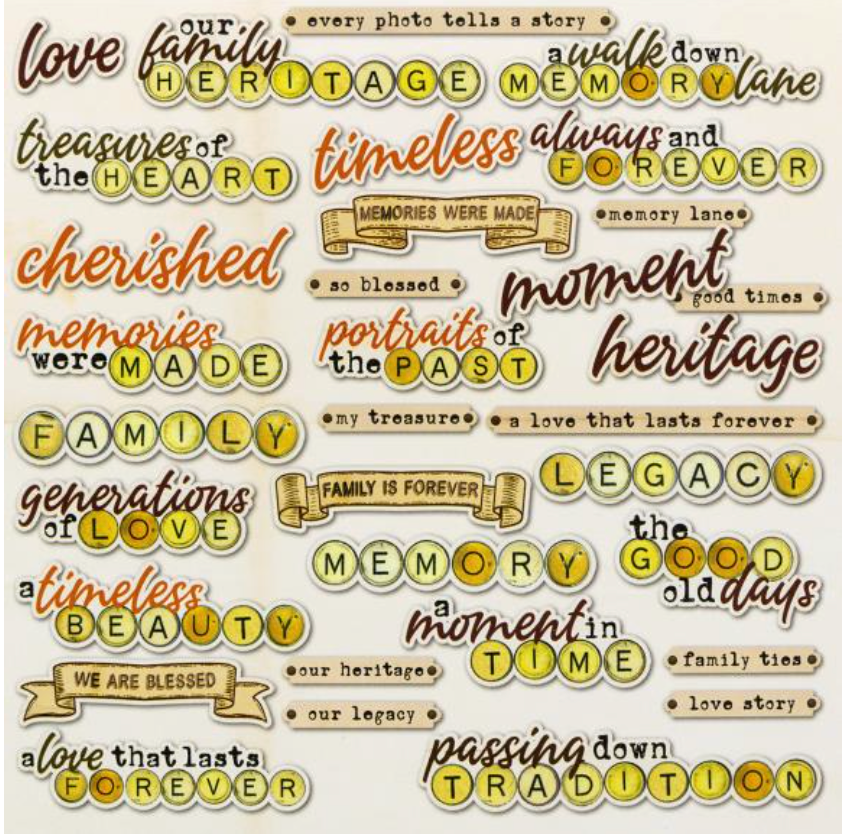 every photo tells a story
love
our
family
HERITAGE
a walk down
MEMORY lane
treasures of
the HEART
timeless
always and
FOREVER
MEMORIES WERE MADE
memory lane
cherished
so blessed
moment
good times
memories
were MADE
portraits of
the PAST
heritage
FAMILY
my treasure
a love that lasts forever
generations
of LOVE
FAMILY IS FOREVER
LEGACY
MEMORY
the
GOOD
old days
a timeless
BEAUTY
a
moment in
TIME
WE ARE BLESSED
our heritage
family ties
our legacy
love story
a love that lasts
FOREVER
passing down
TRADITION